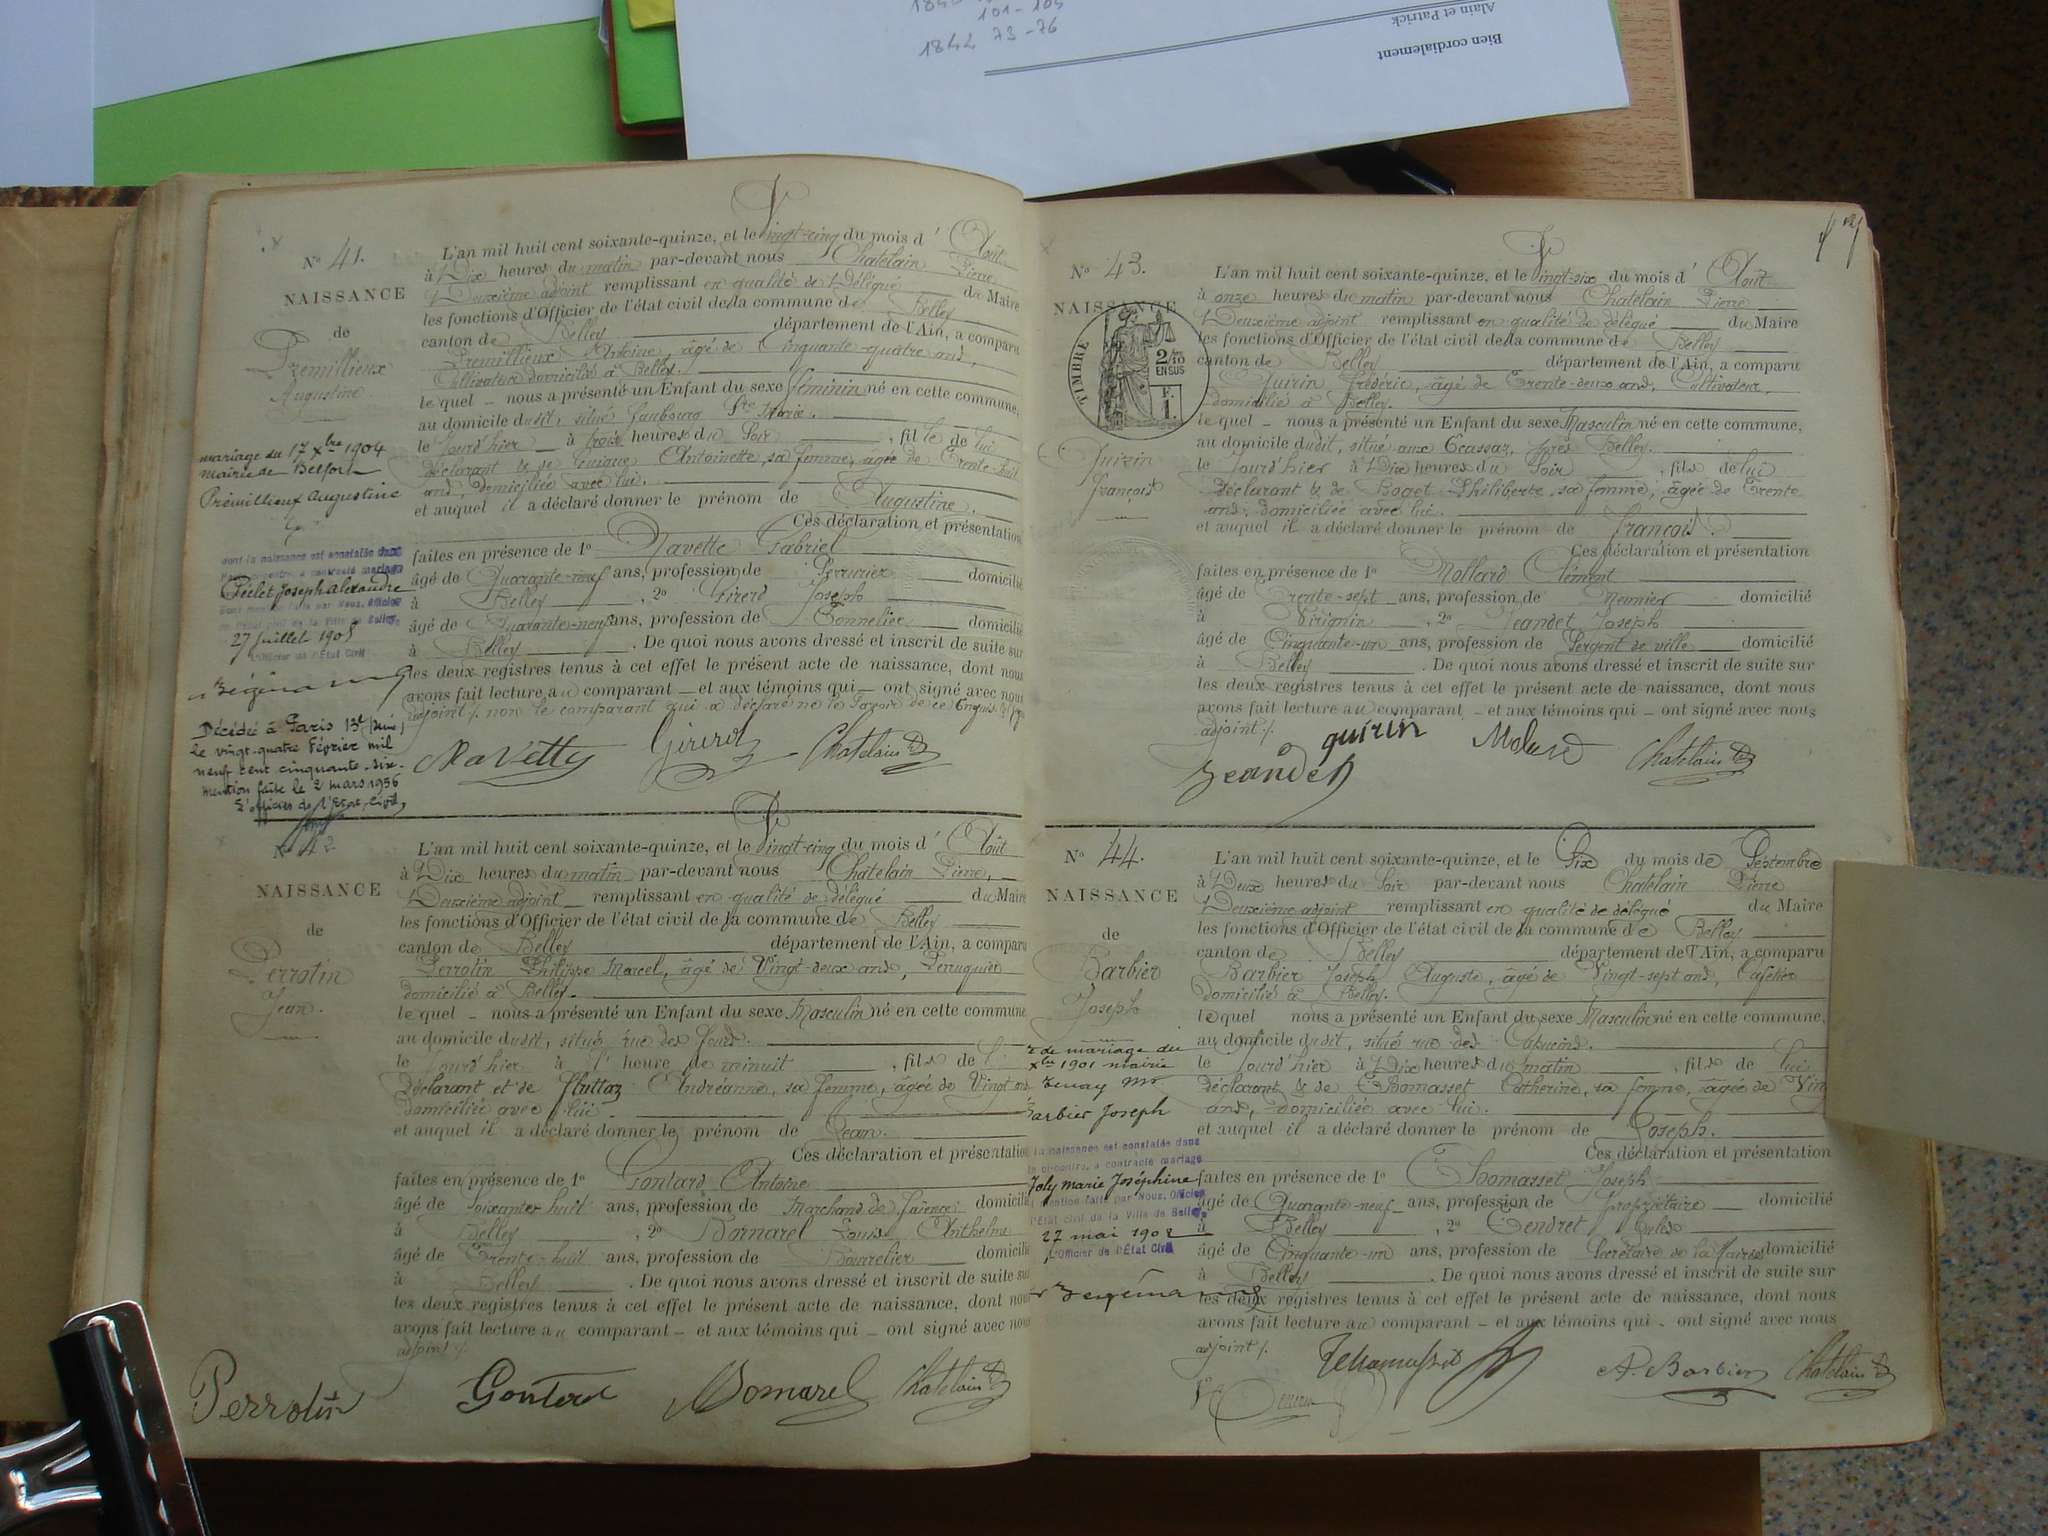 101-104
1844 73-76
Alain et Patrick
Bien cordialement
N° 41.
NAISSANCE
de
Premillieux
Augustine
mariage du 17 Xbre 1904
mairie de Belfort
Prémillieux Augustine
dont la naissance est constatée dans
a contracté mariage
Péclet Joseph Alexandre
27 Juillet 1905
L'Officier de l'État Civil
Décédé à Paris 13e
le vingt-quatre Février mil
neuf cent cinquante-six.
mention faite le 2 mars 1956
L'officier de l'Etat Civil,
L'an mil huit cent soixante-quinze, et le Vingt-cinq du mois d'Août
à Dix heures du matin par-devant nous Chatelain Pierre
Deuxième adjoint remplissant en qualité de Délégué du Maire
les fonctions d'Officier de l'état civil de la commune de Belley
canton de Belley département de l'Ain, a comparu
Premillieux Antoine, âgé de Cinquante-quatre ans,
Cultivateur domicilié à Belley.
le quel nous a présenté un Enfant du sexe féminin né en cette commune,
au domicile dudit, situé faubourg Ste Marie.
le jourd'hier à trois heures du Soir, fille de lui
déclarant & de Antoinette, sa femme, âgée de Trente-huit
ans, domiciliée avec lui.
et auquel il a déclaré donner le prénom de Augustine.
Ces déclaration et présentation
faites en présence de 1° Navette Gabriel
âgé de Quarante-neuf ans, profession de Serrurier domicilié
à Belley, 2° Girerd Joseph
âgé de Quarante-neuf ans, profession de Tonnelier domicilié
à Belley. De quoi nous avons dressé et inscrit de suite sur
les deux registres tenus à cet effet le présent acte de naissance, dont nous
avons fait lecture au comparant et aux témoins qui ont signé avec nous
adjoint /. non le comparant qui a déclaré ne le savoir de ce Enquis
Navette Girerd Chatelain
N° 42
NAISSANCE
de
Perrotin
Jean.
L'an mil huit cent soixante-quinze, et le Vingt-cinq du mois d'Août
à Dix heures du matin par-devant nous Chatelain Pierre,
Deuxième adjoint remplissant en qualité de délégué du Maire
les fonctions d'Officier de l'état civil de la commune de Belley
canton de Belley département de l'Ain, a comparu
Perrotin Philippe Marcel, âgé de Vingt-deux ans, Perruquier
domicilié à Belley.
le quel nous a présenté un Enfant du sexe Masculin né en cette commune,
au domicile dudit, situé rue des Fours.
le jourd'hier à l'heure de minuit, fils de
déclarant et de Andréanne, sa femme, âgée de Vingt ans
domiciliée avec lui.
et auquel il a déclaré donner le prénom de Jean.
Ces déclaration et présentation
faites en présence de 1° Gontard Antoine
âgé de Soixante huit ans, profession de Marchand de faïence domicilié
à Belley, 2° Bornarel Louis Anthelme
âgé de Trente-huit ans, profession de Bourrelier domicilié
à Belley. De quoi nous avons dressé et inscrit de suite sur
les deux registres tenus à cet effet le présent acte de naissance, dont nous
avons fait lecture au comparant et aux témoins qui ont signé avec nous
adjoint /.
Perrotin Gontard Bornarel Chatelain
N° 43.
NAISSANCE
TIMBRE
2/10
EN SUS
F.
1.
Quirin
François
L'an mil huit cent soixante-quinze, et le Vingt-six du mois d'Août
à onze heures du matin par-devant nous Chatelain Pierre
Deuxième adjoint remplissant en qualité de délégué du Maire
les fonctions d'Officier de l'état civil de la commune de Belley
canton de Belley département de l'Ain, a comparu
Quirin Frédéric, âgé de Trente-deux ans, Cultivateur,
domicilié à Belley.
le quel nous a présenté un Enfant du sexe Masculin né en cette commune,
au domicile dudit, situé aux Ecassaz, près Belley.
le jourd'hier à Dix heures du Soir, fils de lui
déclarant & de Boget Philiberte, sa femme, âgée de Trente
ans, domiciliée avec lui.
et auquel il a déclaré donner le prénom de François.
Ces déclaration et présentation
faites en présence de 1° Mollard Clément
âgé de Trente-sept ans, profession de Meunier domicilié
à Virignin, 2° Jeandet Joseph
âgé de Cinquante-un ans, profession de Sergent de ville domicilié
à Belley. De quoi nous avons dressé et inscrit de suite sur
les deux registres tenus à cet effet le présent acte de naissance, dont nous
avons fait lecture au comparant et aux témoins qui ont signé avec nous
adjoint /.
Jeandet quirin Chatelain
N° 44.
NAISSANCE
de
Barbier
Joseph
de mariage du
Xbre 1901 mairie
Barbier Joseph
la naissance est constatée dans
ci-contre, a contracté mariage
Joly marie Joséphine
mention faite par Nous, Officier
l'État civil de la Ville de Belley
27 mai 1902
L'Officier de l'État Civil
L'an mil huit cent soixante-quinze, et le Six du mois de Septembre
à Deux heures du Soir par-devant nous Chatelain Pierre
Deuxième adjoint remplissant en qualité de délégué du Maire
les fonctions d'Officier de l'état civil de la commune de Belley
canton de Belley département de l'Ain, a comparu
Barbier Joseph Auguste, âgé de Vingt-sept ans, Cafetier
domicilié à Belley.
le quel nous a présenté un Enfant du sexe Masculin né en cette commune,
au domicile dudit, situé rue des Capucins.
le jourd'hier à Dix heures du matin, fils de lui
déclarant & de Thomasset Catherine, sa femme, âgée de Vin
ans, domiciliée avec lui.
et auquel il a déclaré donner le prénom de Joseph.
Ces déclaration et présentation
faites en présence de 1° Thomasset Joseph
âgé de Quarante-neuf ans, profession de Propriétaire domicilié
à Belley, 2° Tendret Jules
âgé de Cinquante-un ans, profession de Secrétaire de la Mairie domicilié
à Belley. De quoi nous avons dressé et inscrit de suite sur
les deux registres tenus à cet effet le présent acte de naissance, dont nous
avons fait lecture au comparant et aux témoins qui ont signé avec nous
adjoint /.
Thomasset A. Barbier Chatelain